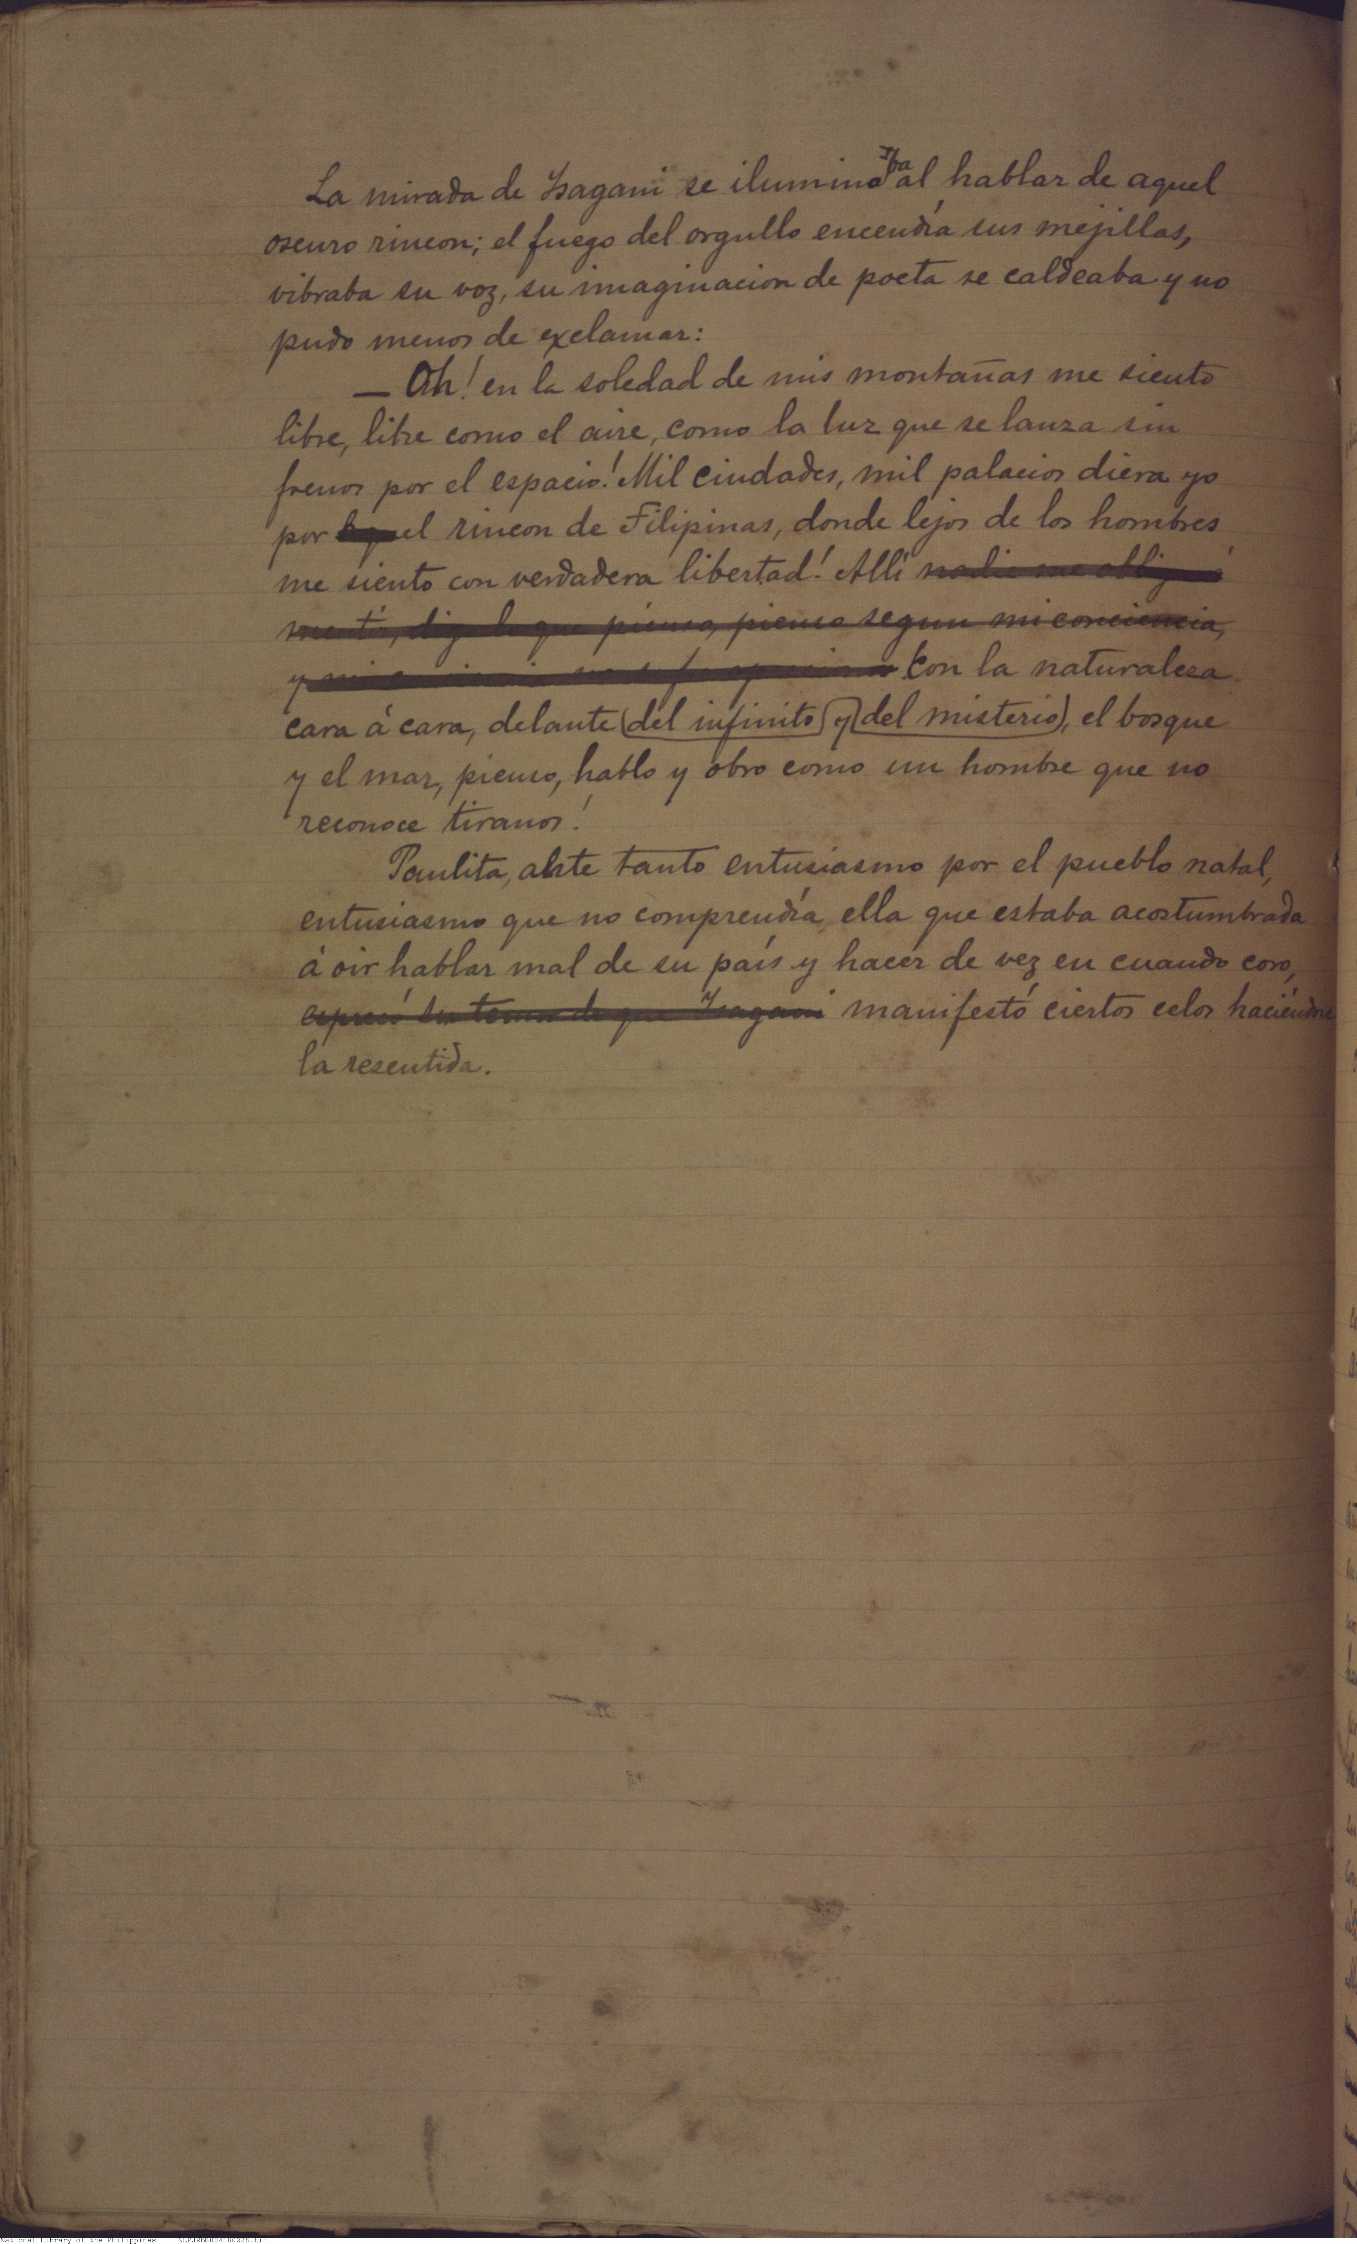 La mirada de Isagani se iluminaba al hablar de aquel
oscuro rincon; el fuego del orgullo encendía sus mejillas,
vibraba su voz, su imaginacion de poeta se caldeaba y no
pudo menos de exclamar:
— Oh! en la soledad de mis montañas me siento
libre, libre como el aire, como la luz que se lanza sin
frenos por el espacio! Mil ciudades, mil palacios diera yo
por el rincon de Filipinas, donde lejos de los hombres
me siento con verdadera libertad! Allí nadie me obliga á
mentir, digo lo que pienso, pienso segun mi conciencia,
y con la naturaleza
cara á cara, delante (del infinito) y (del misterio), el bosque
y el mar, pienso, hablo y obro como un hombre que no
reconoce tiranos!
Paulita, ante tanto entusiasmo por el pueblo natal,
entusiasmo que no comprendía, ella que estaba acostumbrada
á oir hablar mal de su país y hacer de vez en cuando coro,
de que Isagani manifestó ciertos celos haciéndose
la resentida.